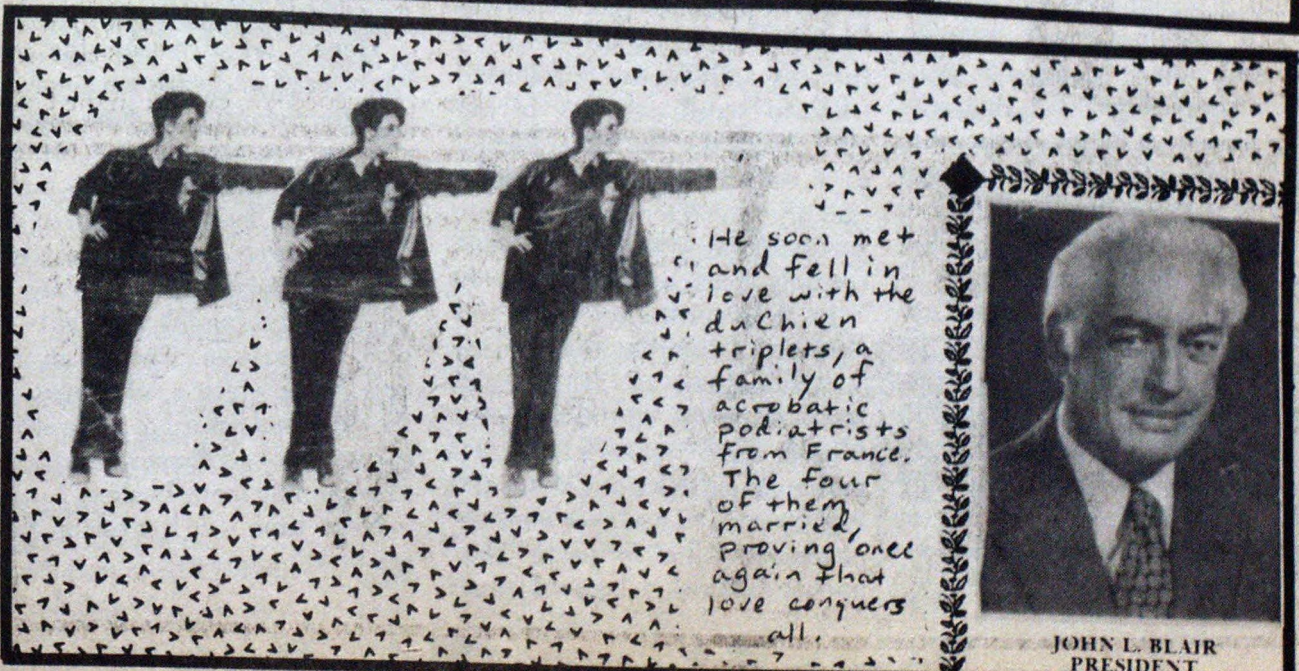 He soon met
and fell in
love with the
duChien
triplets, a
family of
acrobatic
podiatrists
from France.
The four
of them
married,
proving once
again that
love conquers
all.
JOHN L. BLAIR
PRESIDENT